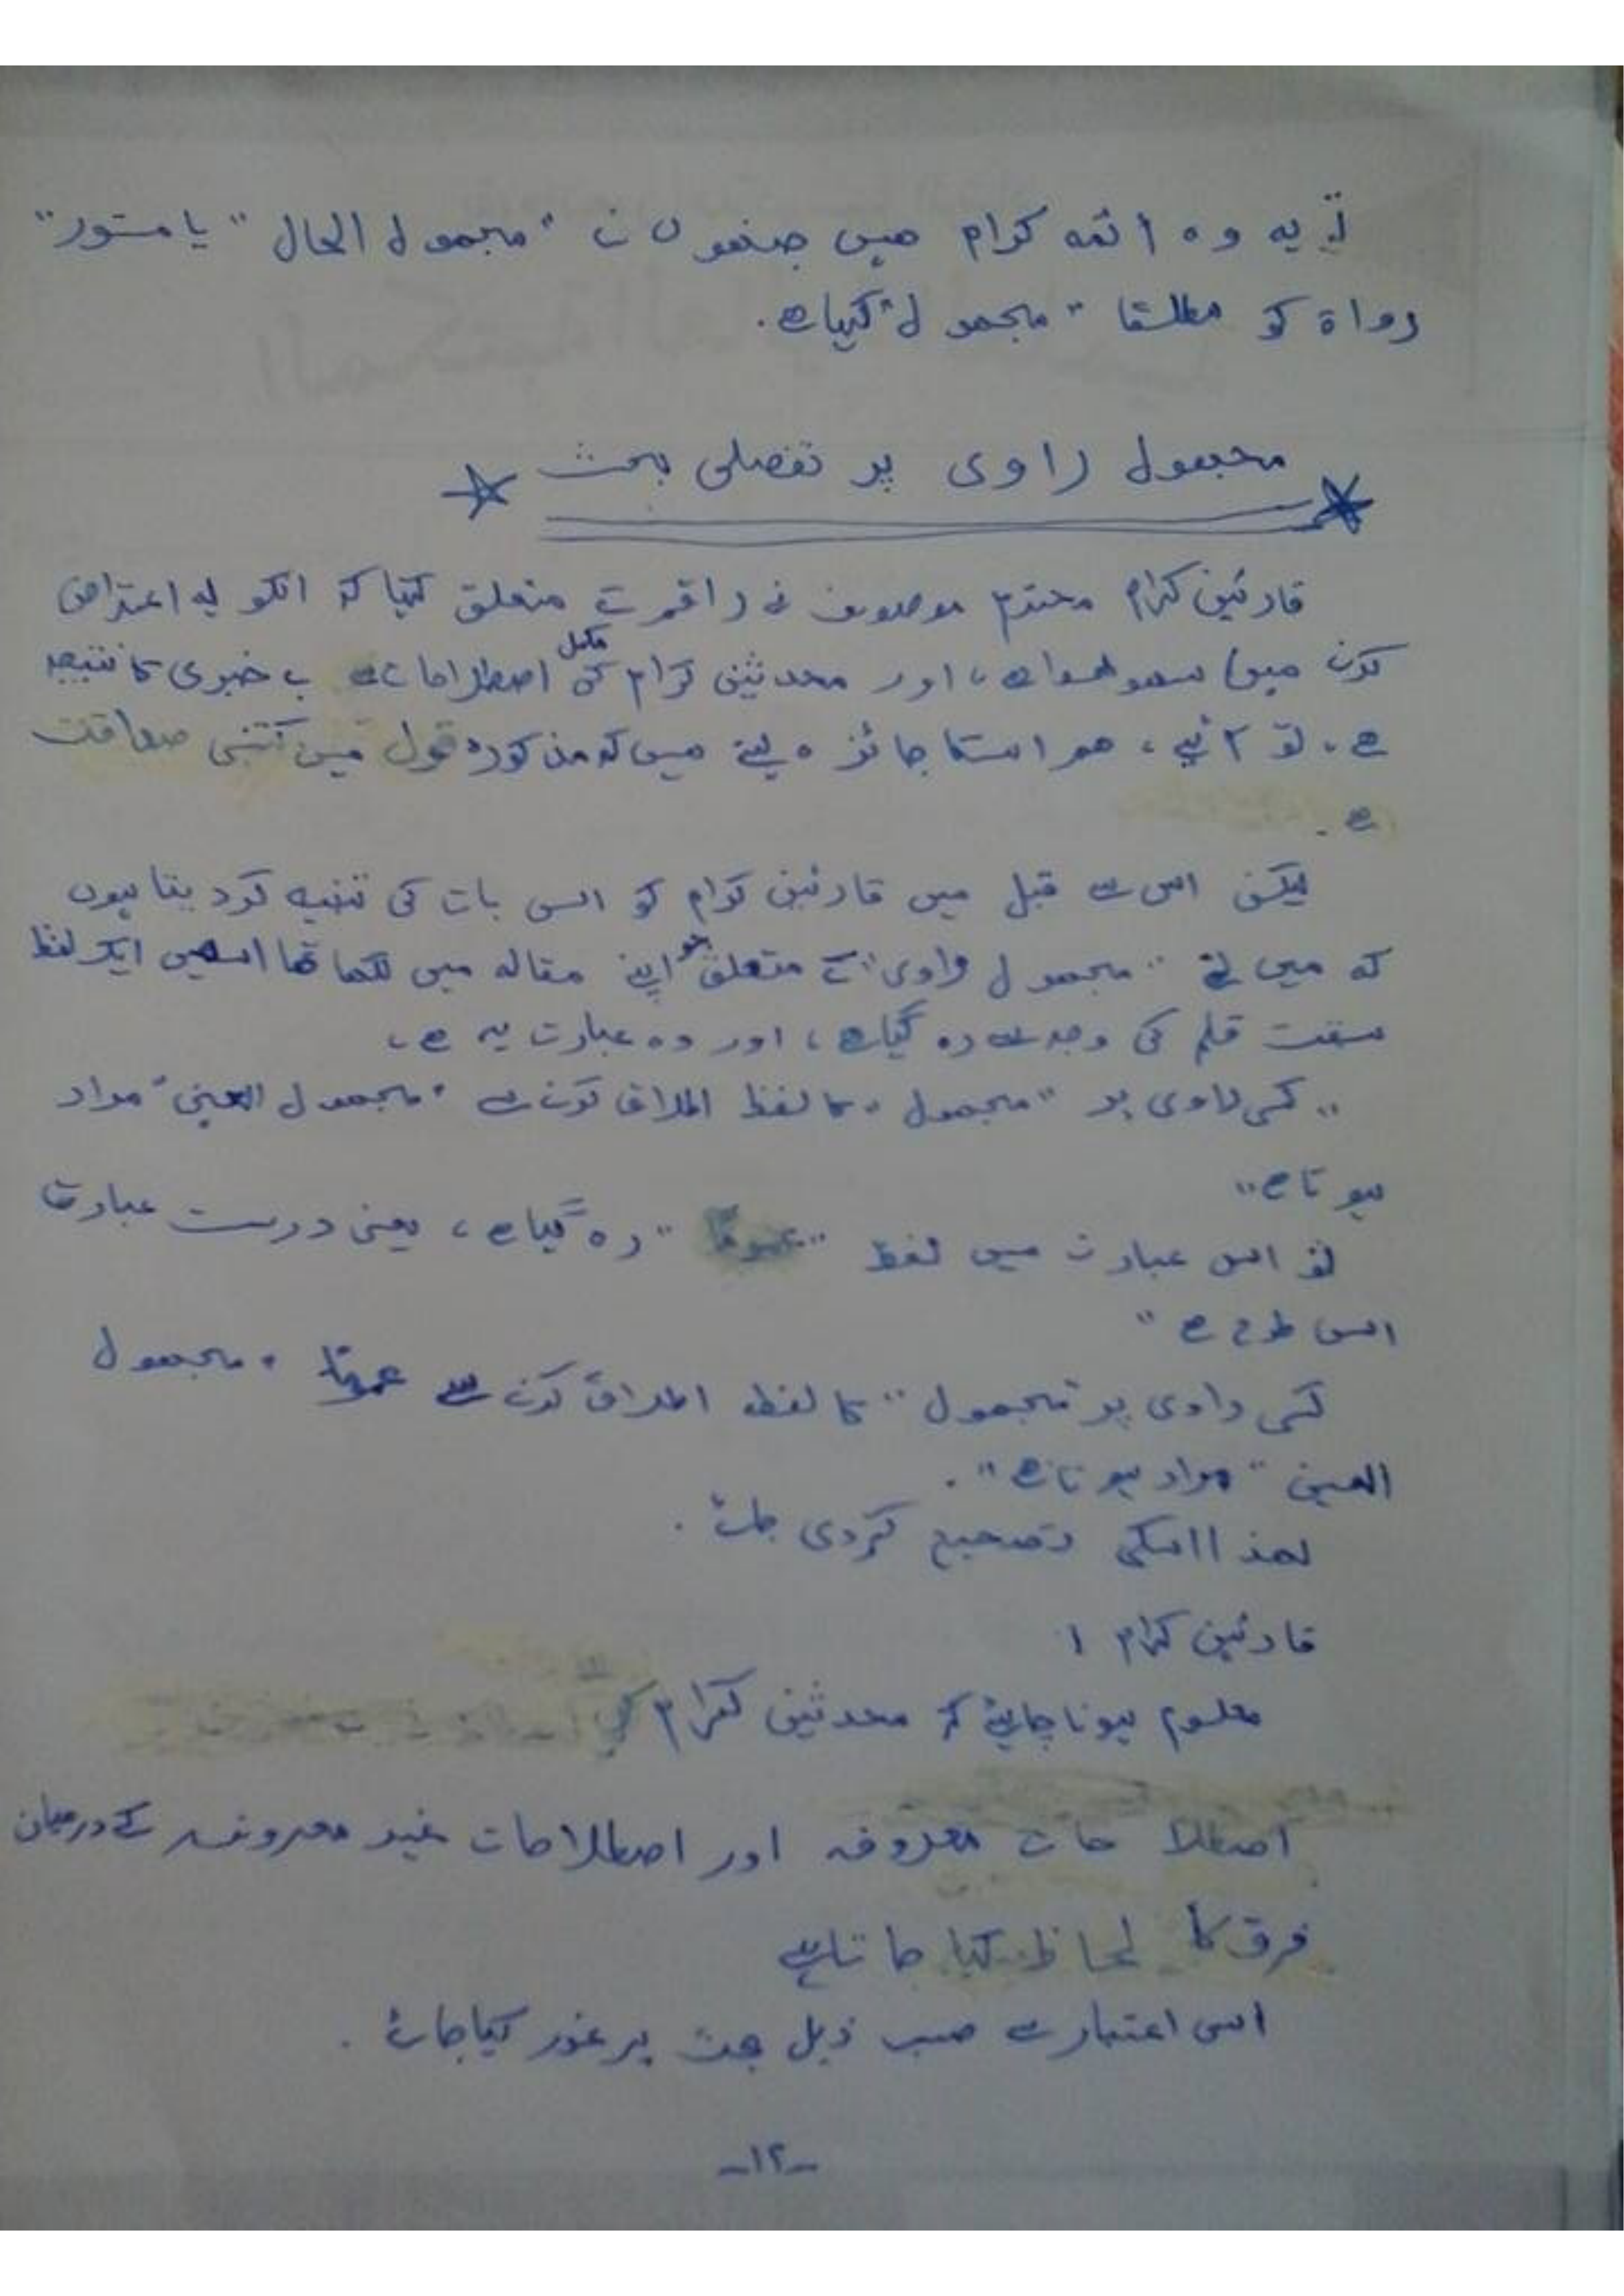 تو یہ وہ ائمہ کرام ہیں جنھوں نے "مجہول الحال" یا مستور"
رواة کو مطلقا "مجہول" کہا ہے.
مجہول راوی پر تفصلی بحث
قارئین کرام محترم موصوف نے راقم کے متعلق کہا کہ انکو یہ اعتراض
کرنے میں سہو ہوا ہے، اور محدثین کرام کی مکمل اصطلاحات سے بے خبری کا نتیجہ
ہے، تو آئیے، ہم اسکا جائزہ لیتے ہیں کہ مذکورہ قول میں کتنی صداقت
ہے.
لیکن اس سے قبل میں قارئین کرام کو اس بات کی تنبیہ کر دیتا ہوں
کہ میں نے "مجہول راوی" کے متعلق جو اپنے مقالہ میں لکھا تھا اسمیں ایک لفظ
سبقت قلم کی وجہ سے رہ گیا ہے، اور وہ عبارت یہ ہے،
"کسی راوی پر "مجہول" کا لفظ اطلاق کرنے سے "مجہول العین" مراد
ہوتا ہے"
تو اس عبارت میں لفظ "عموماً" رہ گیا ہے، یعنی درست عبارت
اس طرح ہے "
کسی راوی پر "مجہول" کا لفظ اطلاق کرنے سے عموماً "مجہول
العین" مراد ہوتا ہے".
لھذا اسکی تصحیح کردی جائے.
قارئین کرام !
معلوم ہونا چاہئے کہ محدثین کرام کی
اصطلاحات معروفہ اور اصطلاحات غیر معروفہ کے درمیان
فرق کا لحاظ کیا جاتا ہے
اسی اعتبار سے حسب ذیل بحث پر غور کیا جائے.
-۱۲-